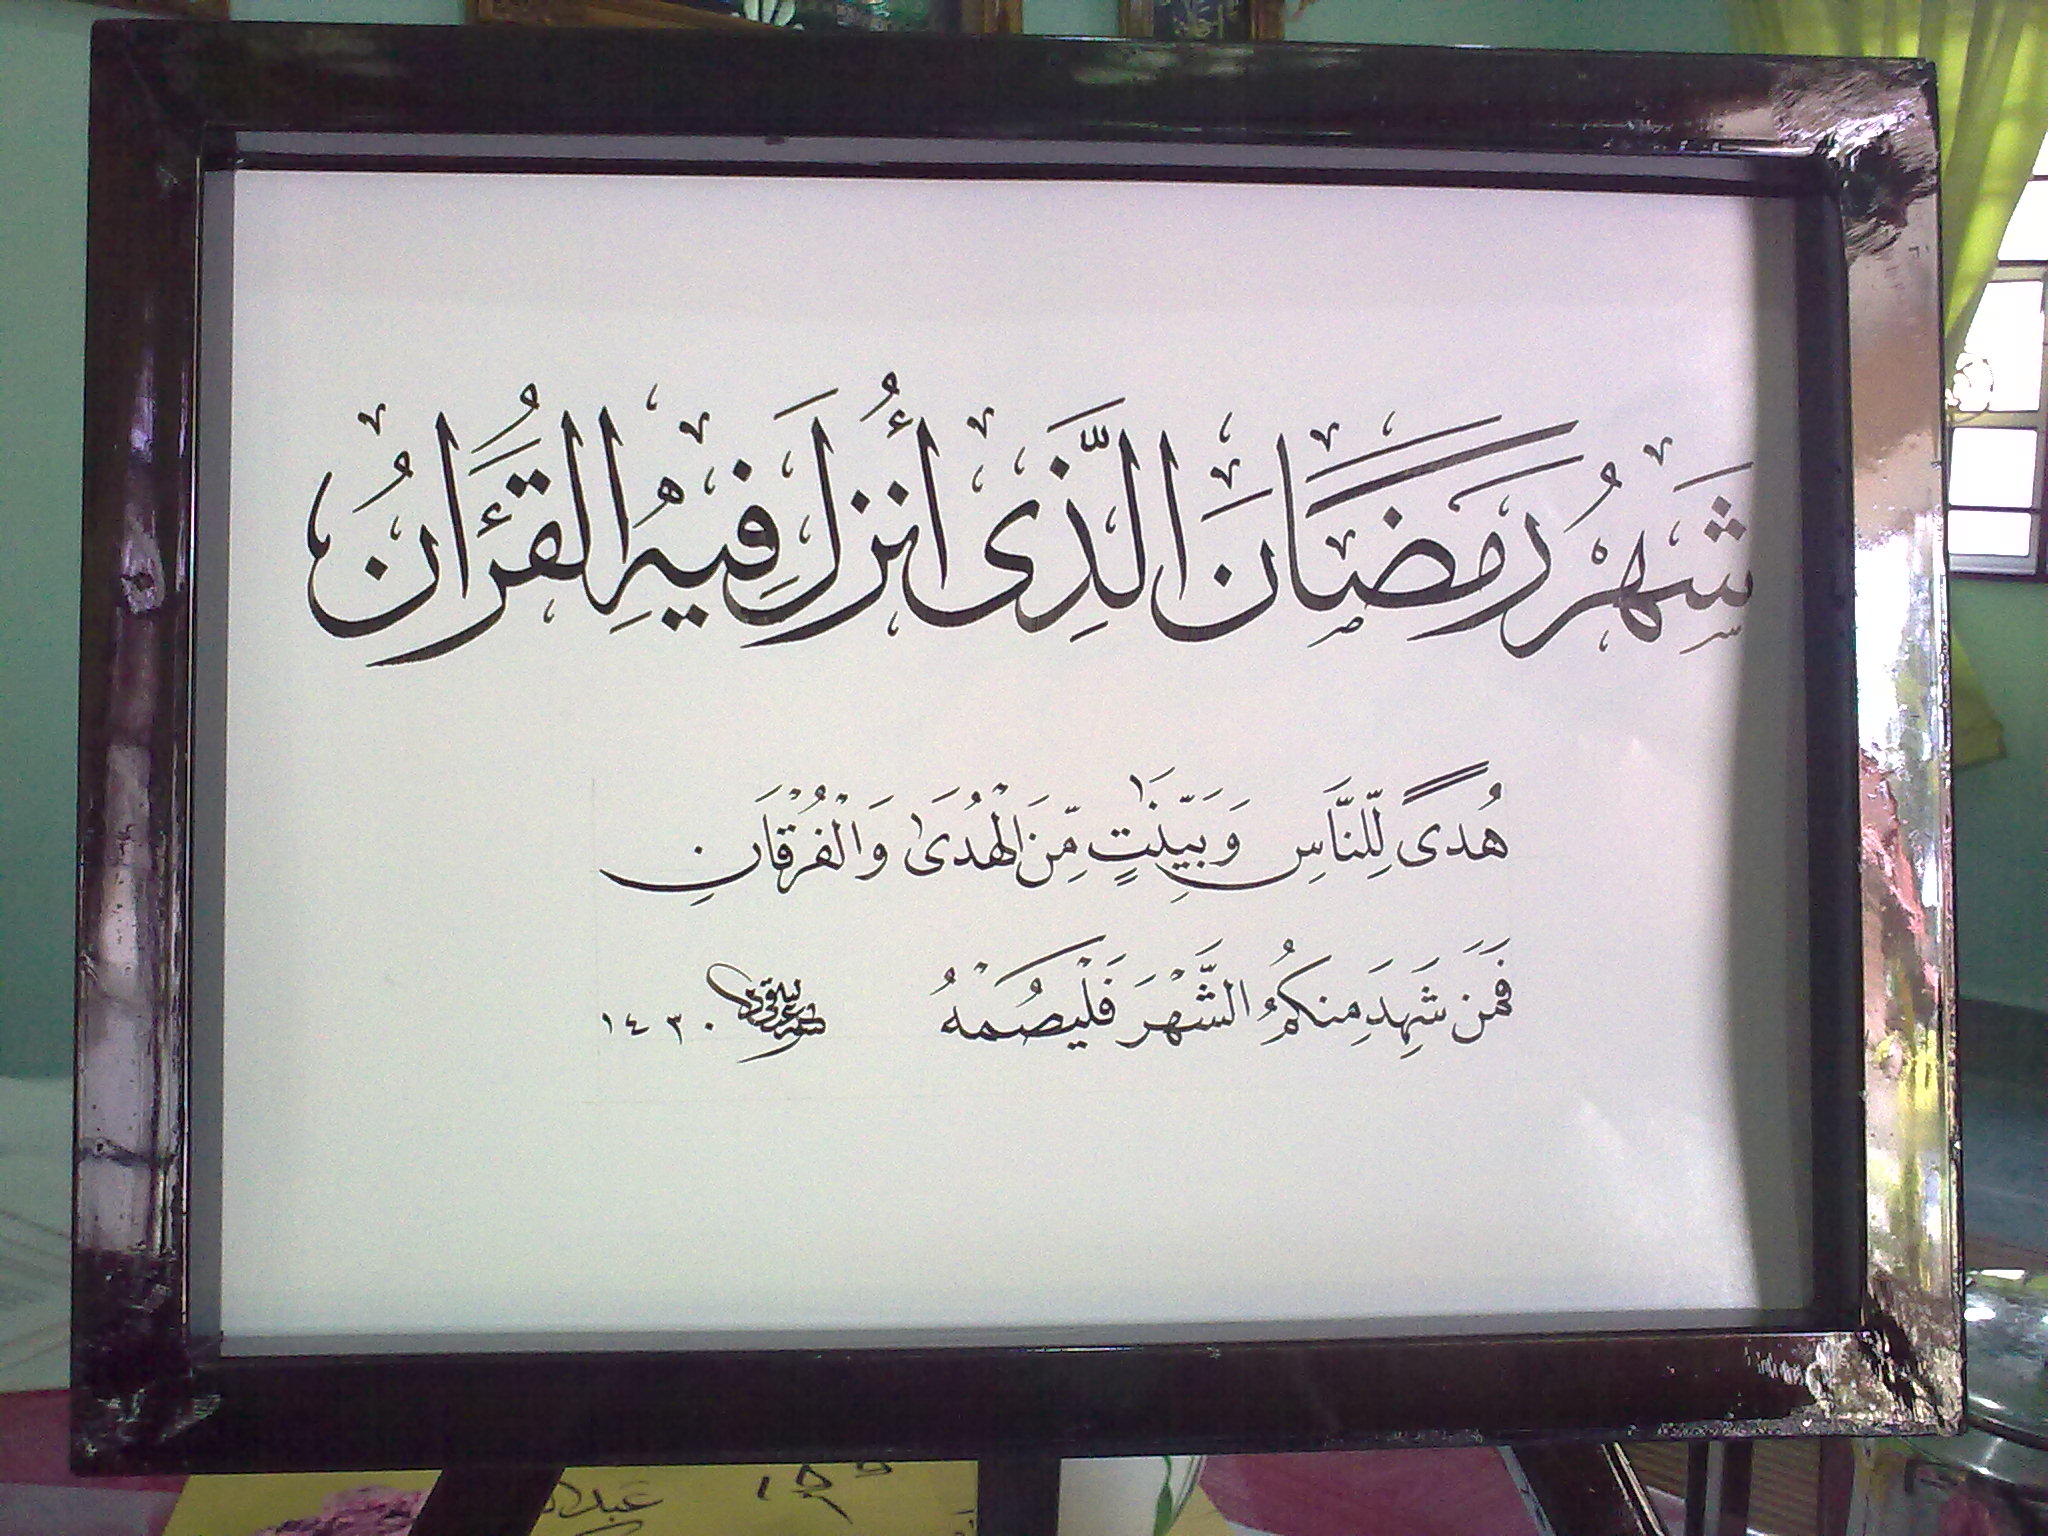 شَهْرُ رَمَضَانَ الَّذِى أُنزِلَ فِيهِ الْقُرْءَانُ
هُدًى لِّلنَّاسِ وَبَيِّنَٰتٍ مِّنَ الْهُدَىٰ وَالْفُرْقَانِ
فَمَن شَهِدَ مِنكُمُ الشَّهْرَ فَلْيَصُمْهُ ١٤٣٠